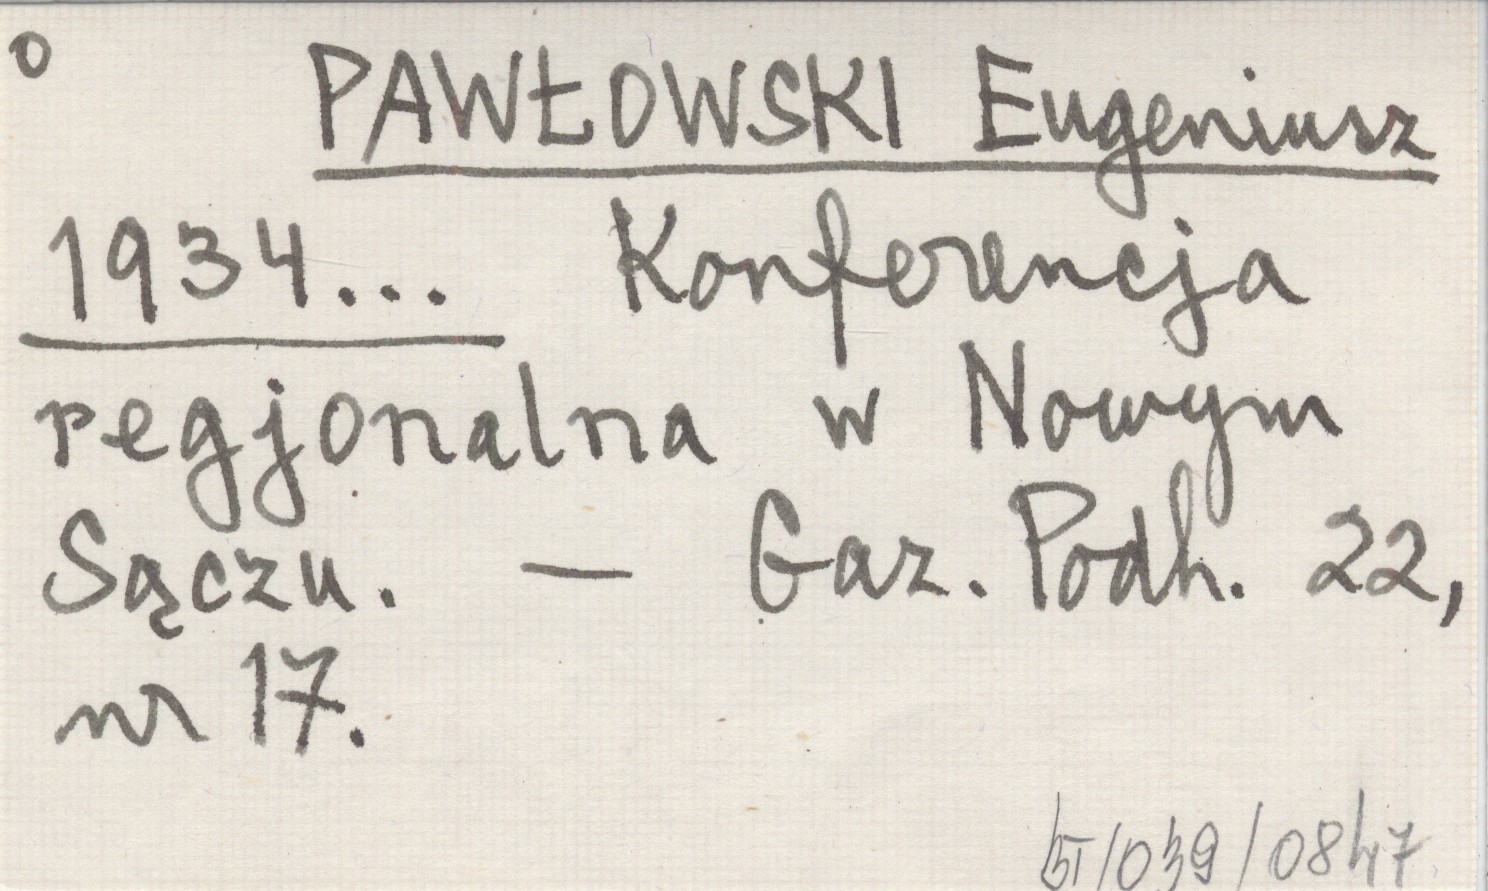 o PAWŁOWSKI Eugeniusz
1934... Konferencja
regjonalna w Nowym
Sączu. — Gaz. Podh. 22,
nr 17.
/039/0847